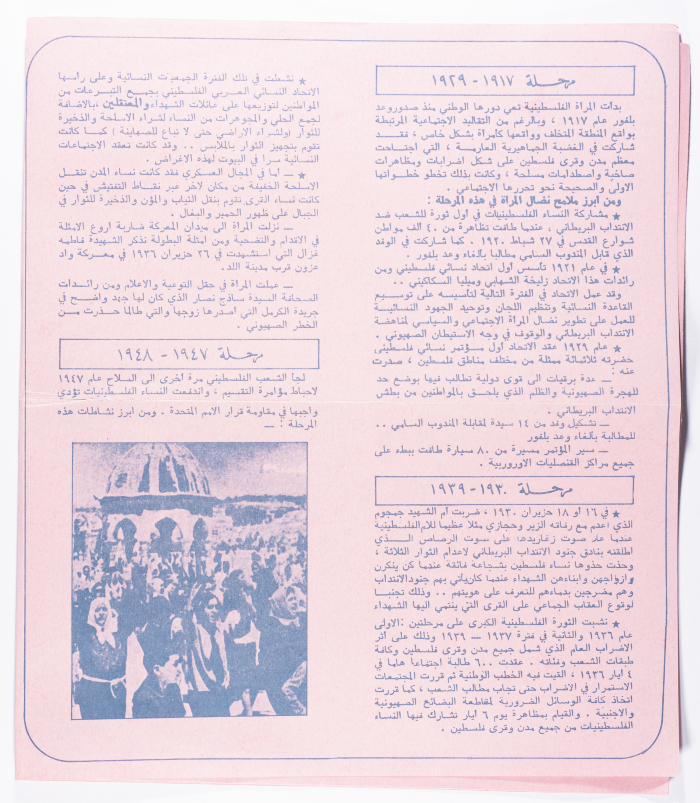 مرحلة ١٩١٧ - ١٩٢٩
بدأت المرأة الفلسطينية تعي دورها الوطني منذ صدور وعد
بلفور عام ١٩١٧ ، وبالرغم من التقاليد الاجتماعية المرتبطة
بواقع المنطقة المتخلف وواقعها كامرأة بشكل خاص ، فقد
شاركت في الغضبة الجماهيرية العارمة ، التي اجتاحت
معظم مدن وقرى فلسطين على شكل اضرابات ومظاهرات
صاخبة واصطدامات مسلحة ، وكانت بذلك تخطو خطواتها
الاولى والصحيحة نحو تحررها الاجتماعي .
ومن ابرز ملامح نضال المرأة في هذه المرحلة :
★ مشاركة النساء الفلسطينيات في اول ثورة للشعب ضد
الانتداب البريطاني ، عندما طافت تظاهرة من ٤٠ الف مواطن
شوارع القدس في ٢٧ شباط ١٩٢٠ . كما شاركت في الوفد
الذي قابل المندوب السامي مطالبا بالغاء وعد بلفور .
★ في عام ١٩٢١ تأسس اول اتحاد نسائي فلسطيني ومن
رائدات هذا الاتحاد زليخة الشهابي وميليا السكاكيني ..
وقد عمل الاتحاد في الفترة التالية لتأسيسه على توسيع
القاعدة النسائية وتنظيم اللجان وتوحيد الجهود النسائية
للعمل على تطوير نضال المرأة الاجتماعي والسياسي لمناهضة
الانتداب البريطاني والوقوف في وجه الاستيطان الصهيوني .
★ عام ١٩٢٩ عقد الاتحاد اول مؤتمر نسائي فلسطيني
حضرته ثلاثمائة ممثلة من مختلف مناطق فلسطين ، صدرت
عنه :
— عدة برقيات الى قوى دولية تطالب فيها بوضع حد
للهجرة الصهيونية والظلم الذي يلحق بالمواطنين من بطش
الانتداب البريطاني .
— تشكيل وفد من ١٤ سيدة لمقابلة المندوب السامي ..
للمطالبة بالغاء وعد بلفور
— سير المؤتمر مسيرة من ٨٠ سيارة طافت ببطء على
جميع مراكز القنصليات الاوروبية .
مرحلة ١٩٣٠ - ١٩٣٩
★ في ١٦ او ١٨ حزيران ١٩٣٠ ، ضربت ام الشهيد جمجوم
الذي اعدم مع رفاقه الزير وحجازي مثلا عظيما للام الفلسطينية
عندما علا صوت زغاريدها على صوت الرصاص الذي
اطلقته بنادق جنود الانتداب البريطاني لاعدام الثوار الثلاثة ،
وحذت حذوها نساء فلسطين بشجاعة فائقة عندما كن ينكرن
وازواجهن وابناءهن الشهداء عندما كان يأتي بهم جنود الانتداب
وهم مضرجين بدماءهم للتعرف على هويتهم .. وذلك تجنبا
لوقوع العقاب الجماعي على القرى التي ينتمي اليها الشهداء
★ نشبت الثورة الفلسطينية الكبرى على مرحلتين : الاولى
عام ١٩٣٦ والثانية في فترة ١٩٣٧ — ١٩٣٩ وذلك على أثر
الاضراب العام الذي شمل جميع مدن وقرى فلسطين وكافة
طبقات الشعب وفئاته . عقدت ٦٠٠ طالبة اجتماعا هاما في
٤ أيار ١٩٣٦ ، القيت فيه الخطب الوطنية ثم قررت المجتمعات
الاستمرار في الاضراب حتى تجاب مطالب الشعب ، كما قررت
اتخاذ كافة الوسائل الضرورية لمقاطعة البضائع الصهيونية
والاجنبية . والقيام بمظاهرة يوم ٦ أيار تشارك فيها النساء
الفلسطينيات من جميع مدن وقرى فلسطين .
★ نشطت في تلك الفترة الجمعيات النسائية وعلى رأسها
الاتحاد النسائي العربي الفلسطيني بجميع التبرعات من
المواطنين لتوزيعها على عائلات الشهداء والمعتقلين ، بالاضافة
لجمع الحلي والمجوهرات من النساء لشراء الاسلحة والذخيرة
للثوار (ولشراء الاراضي حتى لا تباع للصهاينة) كما كانت
تقوم بتجهيز الثوار بالملابس .. وقد كانت تعقد الاجتماعات
النسائية سرا في البيوت لهذه الاغراض .
★ — أما في المجال العسكري فقد كانت نساء المدن تنقل
الاسلحة الخفيفة من مكان لاخر عبر نقاط التفتيش في حين
كانت نساء القرى تقوم بنقل الثياب والمؤن والذخيرة للثوار في
الجبال على ظهور الحمير والبغال .
— نزلت المرأة الى ميدان المعركة ضاربة اروع الامثلة
في الاقدام والتضحية ومن امثلة البطولة نذكر الشهيدة فاطمه
غزال التي استشهدت في ٢٦ حزيران ١٩٣٦ في معركة واد
عزون قرب مدينة اللد .
— عملت المرأة في حقل التوعية والاعلام ومن رائدات
الصحافة السيدة ساذج نصار الذي كان لها جهد واضح في
جريدة الكرمل التي اصدرها زوجها والتي طالما حذرت من
الخطر الصهيوني .
مرحلة ١٩٤٧ - ١٩٤٨
لجأ الشعب الفلسطيني مرة أخرى الى السلاح عام ١٩٤٧
لاحباط مؤامرة التقسيم ، واندفعت النساء الفلسطينيات تؤدي
واجبها في مقاومة قرار الامم المتحدة . ومن ابرز نشاطات هذه
المرحلة : —